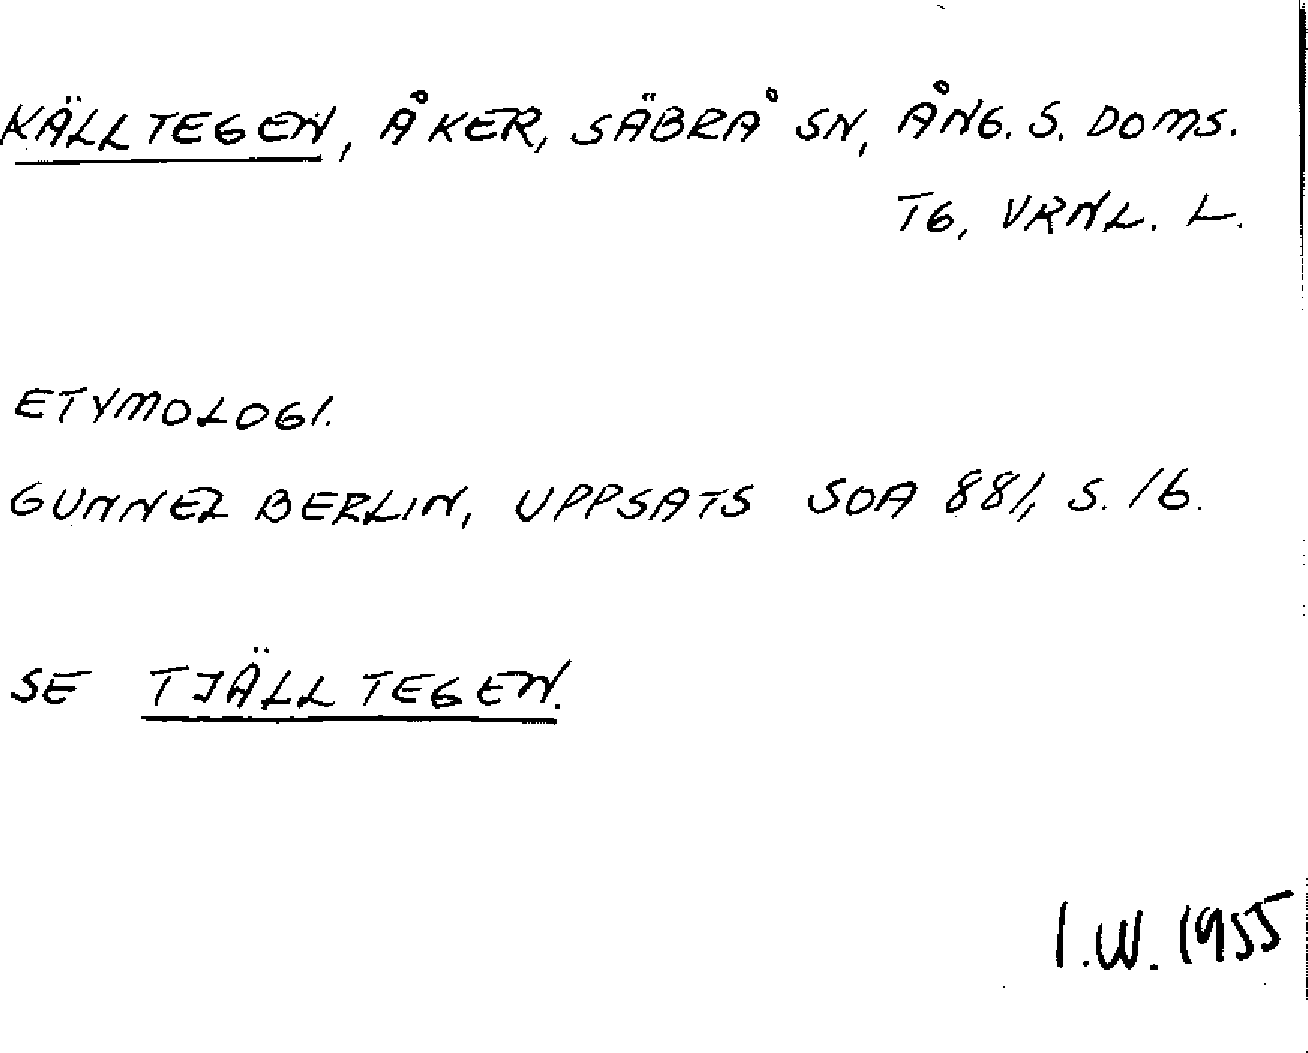 KÄLLTEGEN, ÅKER, SÄBRÅ SN, ÅNG. S. DOMS.
TG, VRNL. L.
ETYMOLOGI.
GUNNEL BERLIN, UPPSATS SOA 881, S. 16.
SE TJÄLLTEGEN.
I.W. 1955